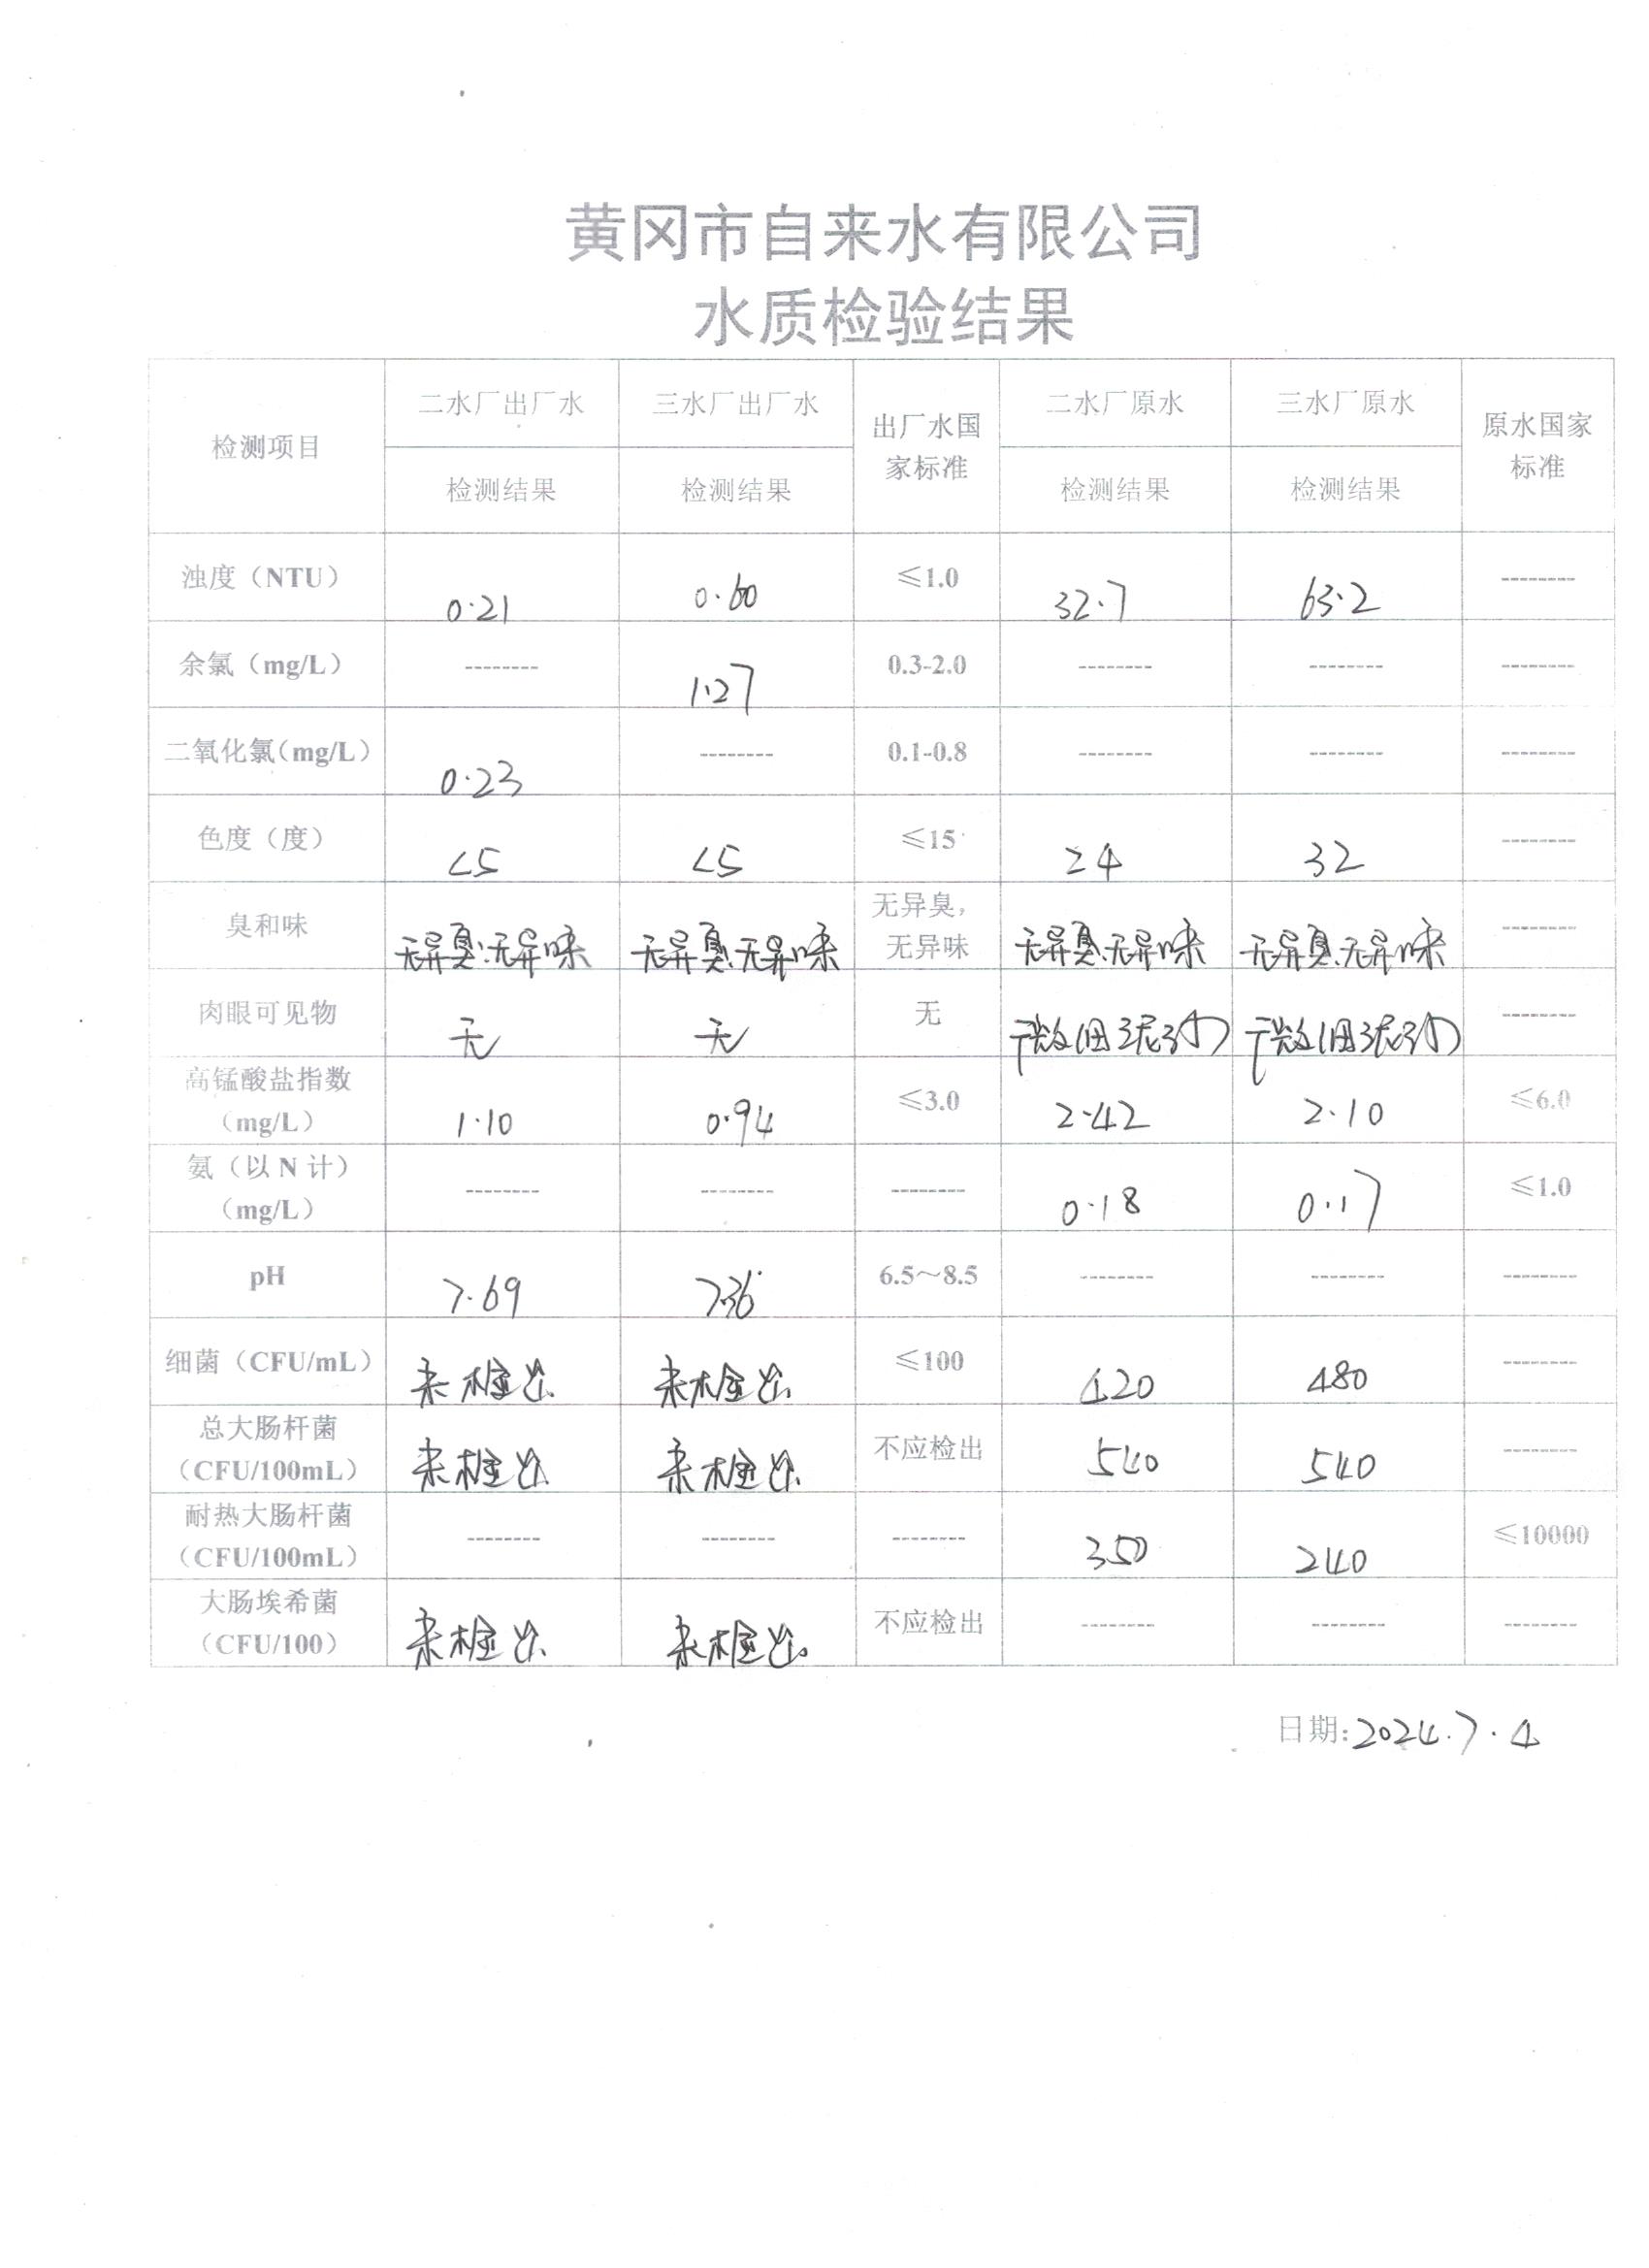 黄冈市自来水有限公司
水质检验结果
检测项目 二水厂出厂水 三水厂出厂水 出厂水国家标准 二水厂原水 三水厂原水 原水国家标准
检测结果 检测结果 检测结果 检测结果
浊度（NTU） 0.21 0.60 ≤1.0 32.7 63.2 --------
余氯（mg/L） -------- 1.27 0.3-2.0 -------- -------- --------
二氧化氯（mg/L） 0.23 -------- 0.1-0.8 -------- -------- --------
色度（度） <5 <5 ≤15 24 32 --------
臭和味 无异臭.无异味 无异臭.无异味 无异臭，无异味 无异臭.无异味 无异臭.无异味 --------
肉眼可见物 无 无 无 微细泥沙 微细泥沙 --------
高锰酸盐指数（mg/L） 1.10 0.94 ≤3.0 2.42 2.10 ≤6.0
氨（以 N 计）（mg/L） -------- -------- -------- 0.18 0.17 ≤1.0
pH 7.69 7.36 6.5～8.5 -------- -------- --------
细菌（CFU/mL） 未检出. 未检出. ≤100 420 480 --------
总大肠杆菌（CFU/100mL） 未检出. 未检出. 不应检出 540 540 --------
耐热大肠杆菌（CFU/100mL） -------- -------- -------- 350 240 ≤10000
大肠埃希菌（CFU/100） 未检出. 未检出。 不应检出 -------- -------- --------
日期:2024.7.4